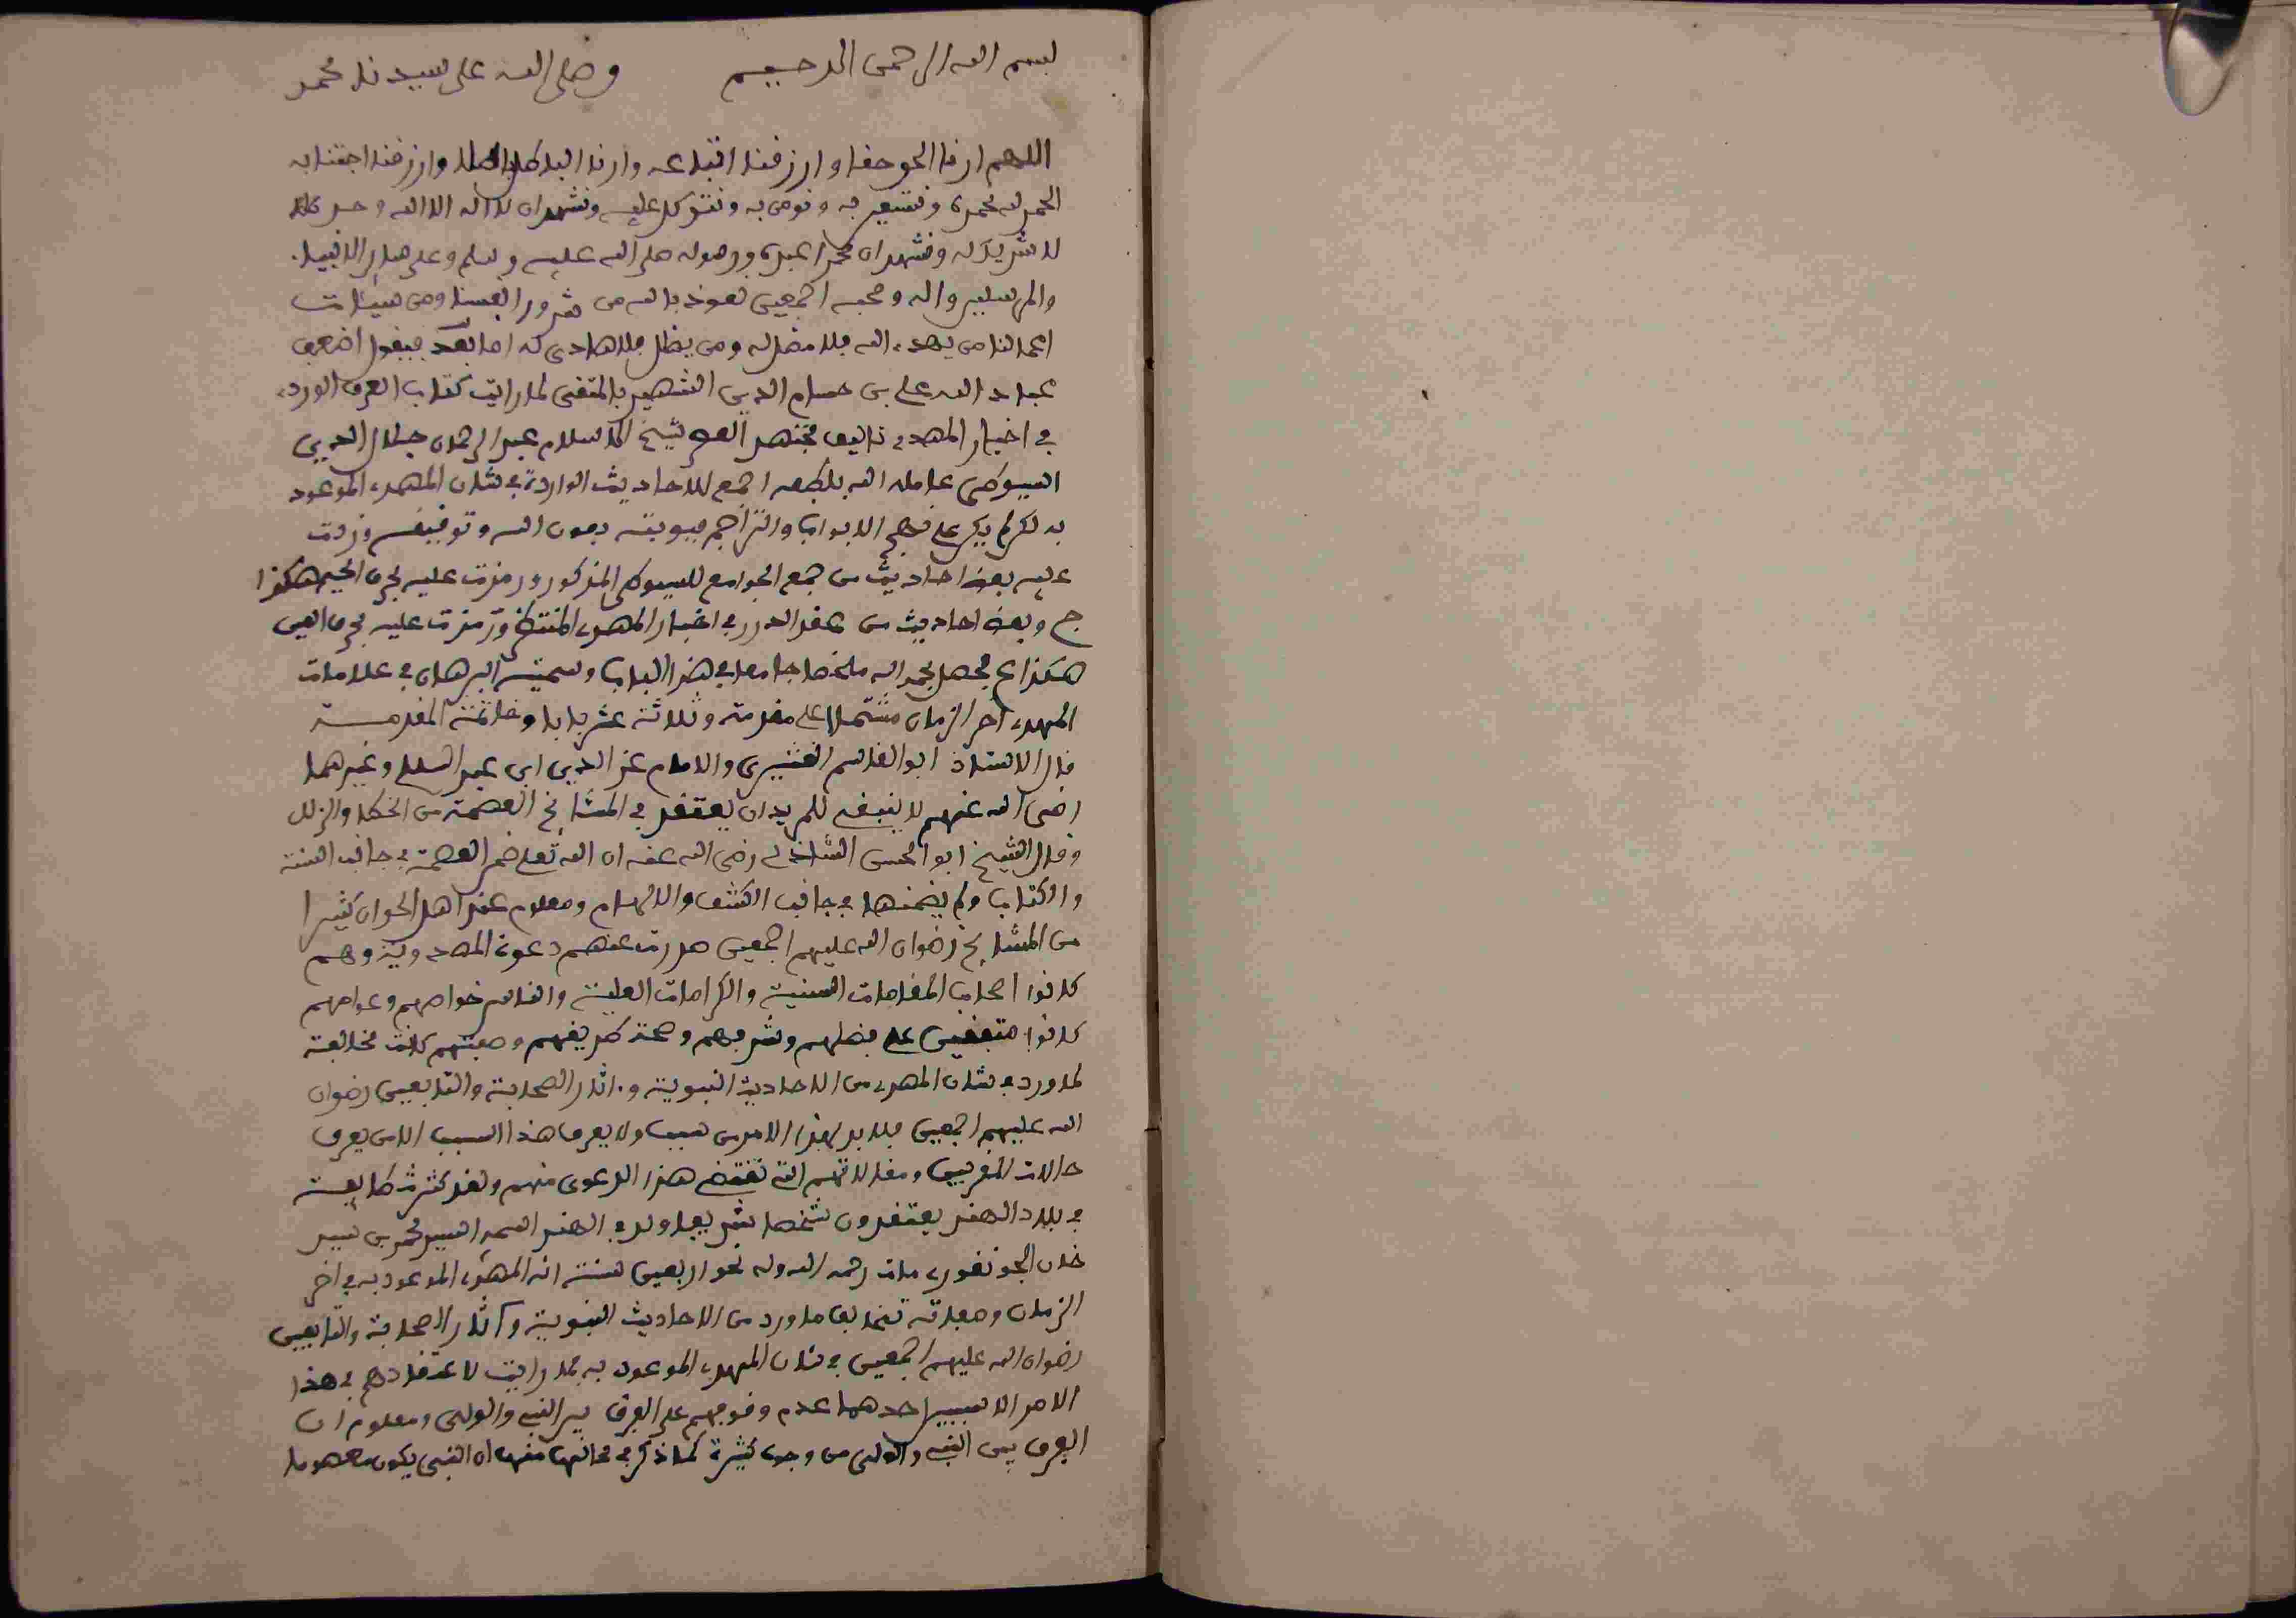 بسم الله الرحمن الرحيم وصلى الله على سيدنا محمد
اللهم ارنا الحق حقا وارزقنا اتباعه وارنا الباطل باطلا وارزقنا اجتنابه
الحمد لله نحمده ونستعين به ونومن به ونتوكل عليه ونشهد ان لا اله الا الله وحده
لا شريك له ونشهد ان محمدا عبده ورسوله صلى الله عليه وسلم وعلى سائر الانبياء
والمرسلين واله وصحبه اجمعين نعوذ بالله من شرور انفسنا ومن سيئات
اعمالنا من يهده الله فلا مضل له ومن يضلل فلا هادي له اما بعد فيقول اضعف
عباد الله علي بن حسام الدين الشهير بالمتقي لما رايت كتاب العرف الوردي
في اخبار المهدي تاليف مجتهد العصر شيخ الاسلام عبد الرحمان جلال الدين
السيوطي عامله الله بلطفه اجمع للاحاديث الواردة في شان المهدي الموعود
به لكن لم يكن على نهج الابواب والتراجم فبوبته بعون الله وتوفيقه وزدت
عليه بعض احاديث من جمع الجوامع للسيوطي المذكور ورمزت عليه بحرف الجيم هكذا
ج وبعض احاديث من عقد الدرر في اخبار المهدي المنتظر ورمزت عليه بحرف العين
هكذا ع فحصل بحمد الله ملخصا جامعا في هذا الباب وسميته البرهان في علامات
المهدي آخر الزمان مشتملا على مقدمة وثلاثة عشر بابا وخاتمة المقدمة
قال الاستاذ ابو القاسم القشيري والامام عز الدين ابن عبد السلام وغيرهما
رضي الله عنهم لا ينبغي للمريد ان يعتقد في المشائخ العصمة من الخطا والزلل
وقال الشيخ ابو الحسن الشاذلي رضي الله عنه ان الله تعلى ضمن العصمة في جانب السنة
والكتاب ولم يضمنها في جانب الكشف والالهام ومعلوم عند اهل الحق ان كثيرا
من المشايخ رضوان الله عليهم اجمعين صدرت عنهم دعوة المهدوية وهم
كانوا اصحاب المقامات السنية والكرامات العلية والناس خواصهم وعوامهم
كانوا متفقين على فضلهم وشرفهم وصحة طريقهم وصفتهم كانت مخالفة
لما ورد في شان المهدي من الاحاديث النبوية واثار الصحابة والتابعين رضوان
الله عليهم اجمعين فلا بد لهذا الامر من سبب ولا يعرف هذا السبب الا من يعرف
حالات المقربين ومقالاتهم التي تقتضي هذا الدعوى منهم ولقد كثرت طايفة
في بلاد الهند يعتقدون شخصا شريفا ولد في الهند اسمه السيد محمد بن سيد
خان الجونفوري مات رحمه الله وله نحو اربعين سنة انه المهدي الموعود به في اخر
الزمان وصفاته تخالف ما ورد من الاحاديث النبوية وآثار الصحابة والتابعين
رضوان الله عليهم اجمعين في شان المهدي الموعود به فما رايت لاعتقادهم في هذا
الامر الا سببين احدهما عدم وقوفهم على الفرق بين النبي والولي ومعلوم ان
الفرق بين النبي والولي من وجوه كثيرة كما ذكر في محالها منها ان النبي يكون معصوما